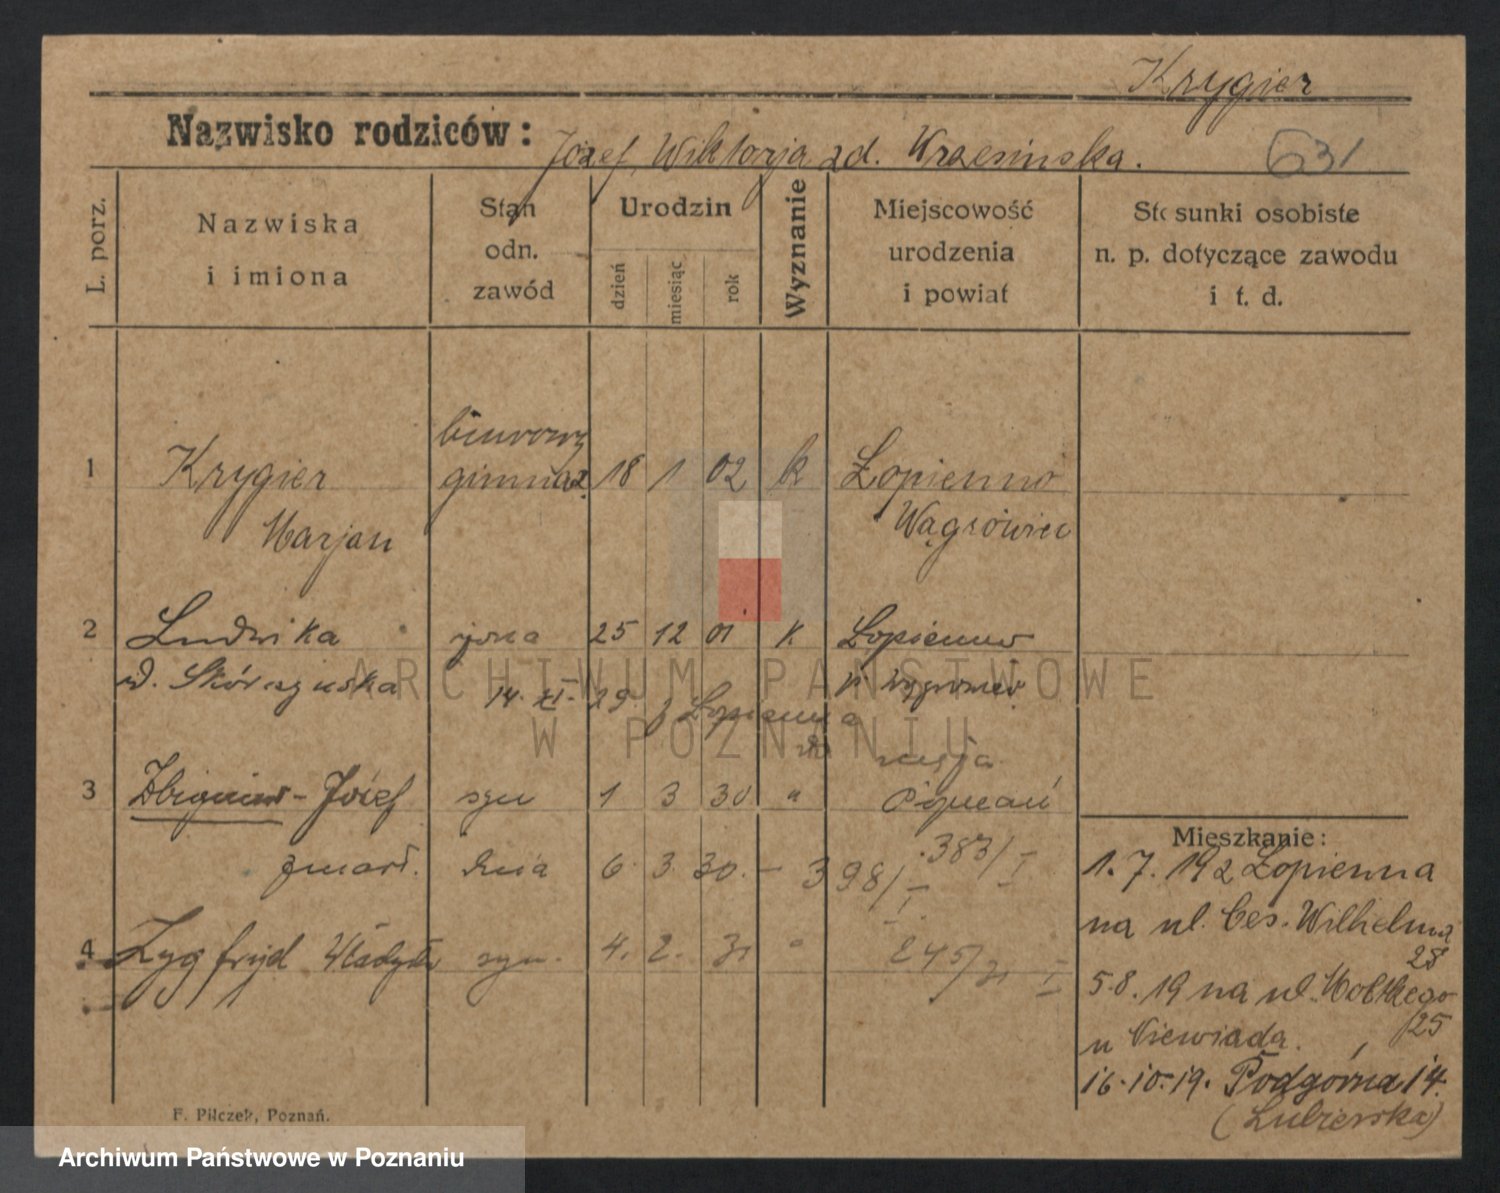 Krygier
Nazwisko rodziców: Józef, Wiktorja zd. Krzesińska.
631
L. porz.
Nazwiska
i imiona
Stan
odn.
zawód
Urodzin
dzień
miesiąc
rok
Wyznanie
Miejscowość
urodzenia
i powiat
Stosunki osobiste
n. p. dotyczące zawodu
i t. d.
biurowy
1 Krygier gimnaz. 18 1 02 k Łopienno
Marjan Wągrówiec
2 Ludwika żona 25 12 01 k Łopienno
d. Skórzyńska
14. XI. 29. Łopienno
3 Zbigniew-Józef syn 1 3 30 " Poznań
383/I
zmarł. dnia 6. 3. 30. – 398/I
4 Zygfryd Władysł. syn. 4. 2. 31 " 245/31 I
Mieszkanie:
1. 7. 192 Łopienna
na ul. Ces. Wilhelma
28
5.8.19 na ul. Moltkego
25
u Niewiada.
16.10.19. Podgórna 14.
(Lubierska)
F. Pilczek, Poznań.
ARCHIWUM PAŃSTWOWE
W POZNANIU
Archiwum Państwowe w Poznaniu